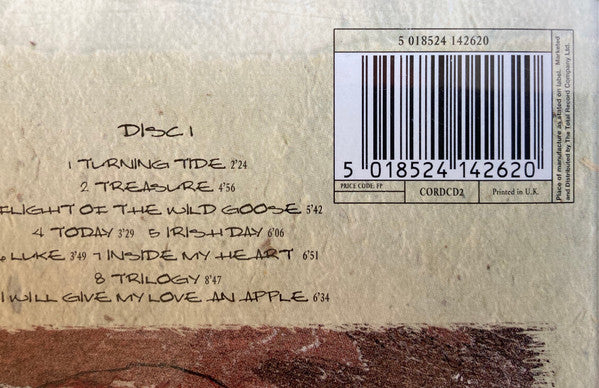 5 018524 142620
5 018524 142620
PRICE CODE: FP
CORDCD2
Printed in U.K.
Place of manufacture as stated on label. Marketed
and Distributed by The Total Record Company Ltd.
DISC 1
1 TURNING TIDE 2'24
2 TREASURE 4'56
FLIGHT OF THE WILD GOOSE 5'42
4 TODAY 3'29 5 IRISH DAY 6'06
LUKE 3'49 7 INSIDE MY HEART 6'51
8 TRILOGY 8'47
I WILL GIVE MY LOVE AN APPLE 6'34